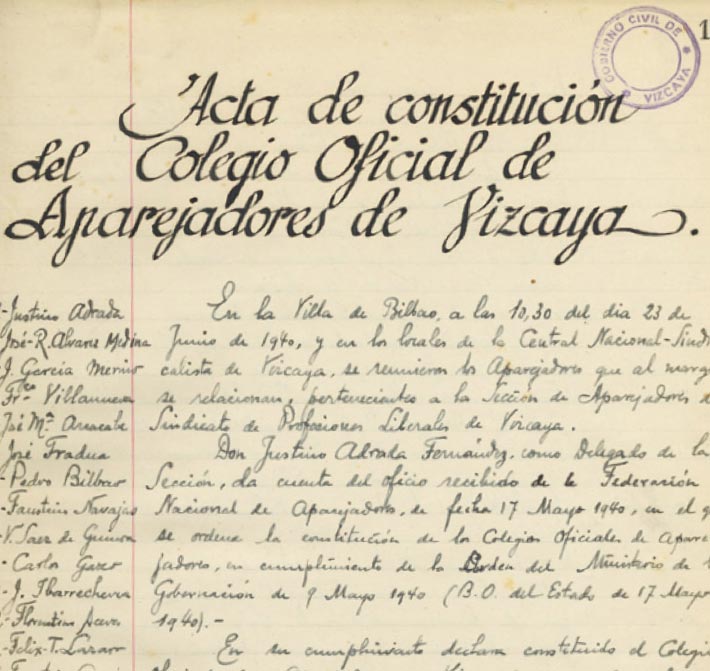 1
GOBIERNO CIVIL DE VIZCAYA
Acta de constitución
del Colegio Oficial de
Aparejadores de Vizcaya.
-Justino Adrada
José-R. Alvarez Medina
J. García Merino
Fr.co Villanueva
José M.ª
José Fradua
- Pedro Bilbao
- Faustino Navajas
-V. Saez de
- Carlos
- J. Ibarrechevea
- Florentino
- Felix-T. Lazaro
En la Villa de Bilbao, a las 10,30 del dia 23 de
Junio de 1940, y en los locales de la Central Nacional-Sindi
calista de Vizcaya, se reunieron los Aparejadores que al marg
se relacionan, pertenecientes a la Sección de Aparejadores d
Sindicato de Profesiones Liberales de Vizcaya.
Don Justino Adrada Fernández, como Delegado de la
Sección, da cuenta del oficio recibido de la Federación
Nacional de Aparejadores, de fecha 17 Mayo 1940, en el q
se ordena la constitución de los Colegios Oficiales de Apare
jadores, en cumplimiento de la Orden del Ministerio de l
Gobernación de 9 Mayo 1940 (B.O. del Estado de 17 Mayo
1940).-
En su cumplimiento declara constituido el Colegi